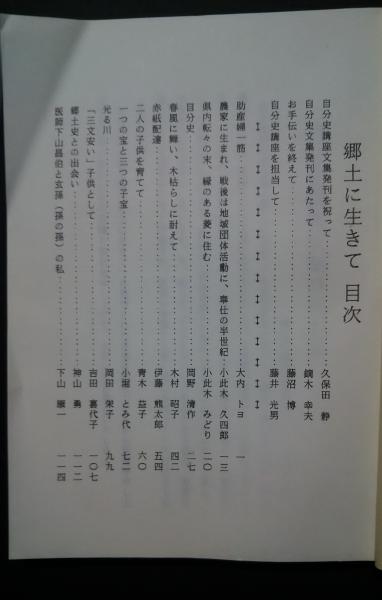 郷土に生きて 目次
自分史講座文集発刊を祝って……………久保田 静
自分史文集発刊にあたって……………鏑木 幸夫
お手伝いを終えて……………藤沼 博
自分史講座を担当して……………藤井 光男
助産婦一筋……………大内 トヨ 一
農家に生まれ、戦後は地域団体活動に、奉仕の半世紀……小此木 久四郎 一三
県内転々の末、縁のある菱に住む……………小此木 みどり 二〇
自分史……………岡野 清作 二七
春風に舞い、木枯らしに耐えて……………木村 昭子 四二
赤紙配達……………伊藤 熊太郎 五四
二人の子供を育てて……………青木 益子 六〇
一つの宝と三つの子宝……………小堀 とみ代 七二
光る川……………岡田 栄子 九九
「三文安い」子供として……………吉田 喜代子 一〇七
郷土史との出会い……………神山 勇 一一二
医師下山昌伯と玄孫(孫の孫)の私……………下山 順一 一一四